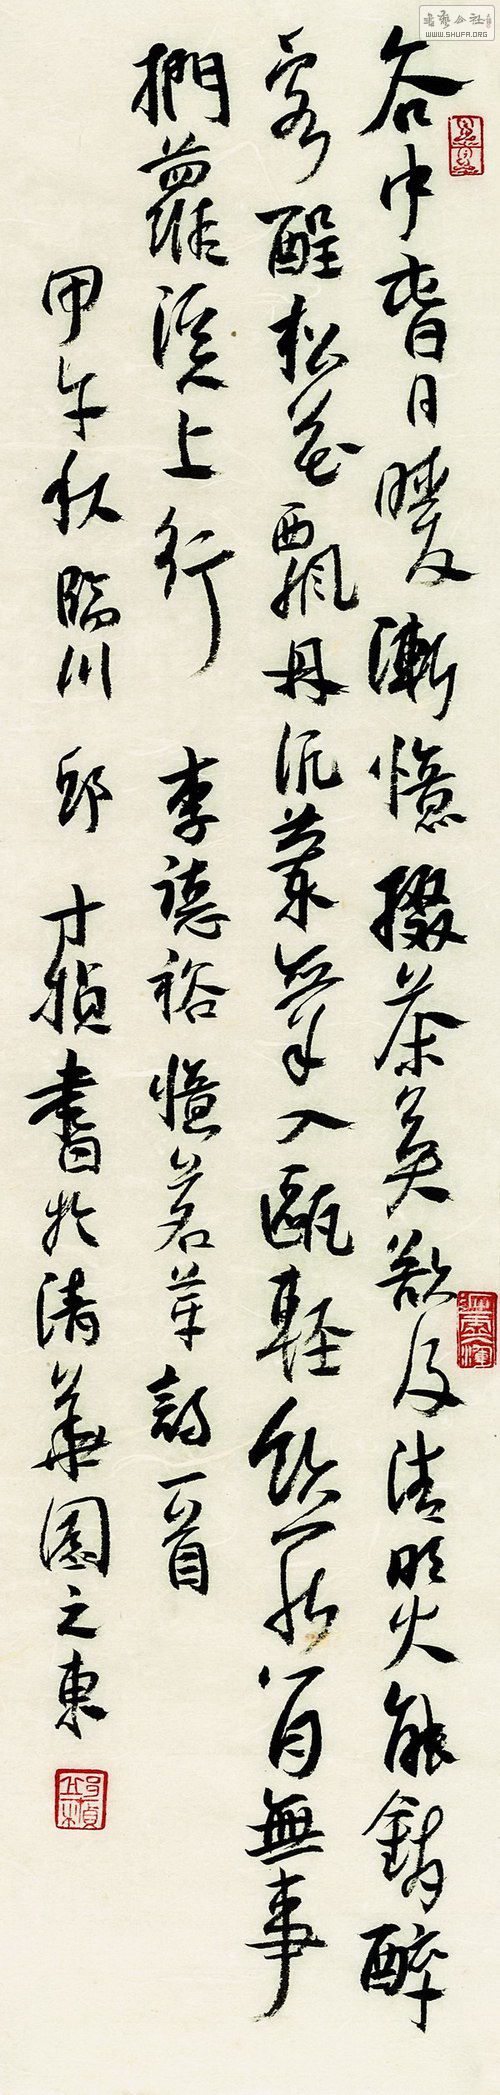 谷中春日暖漸憶掇茶英欲及清明火能銷醉
客酲松花飄鼎泛蘭氣入甌輕飲罷閒無事
捫蘿溪上行 李德裕憶茗芽詩一首
甲午秋臨川邱才楨書於清華園之東
书艺公社
WWW.SHUFA.ORG